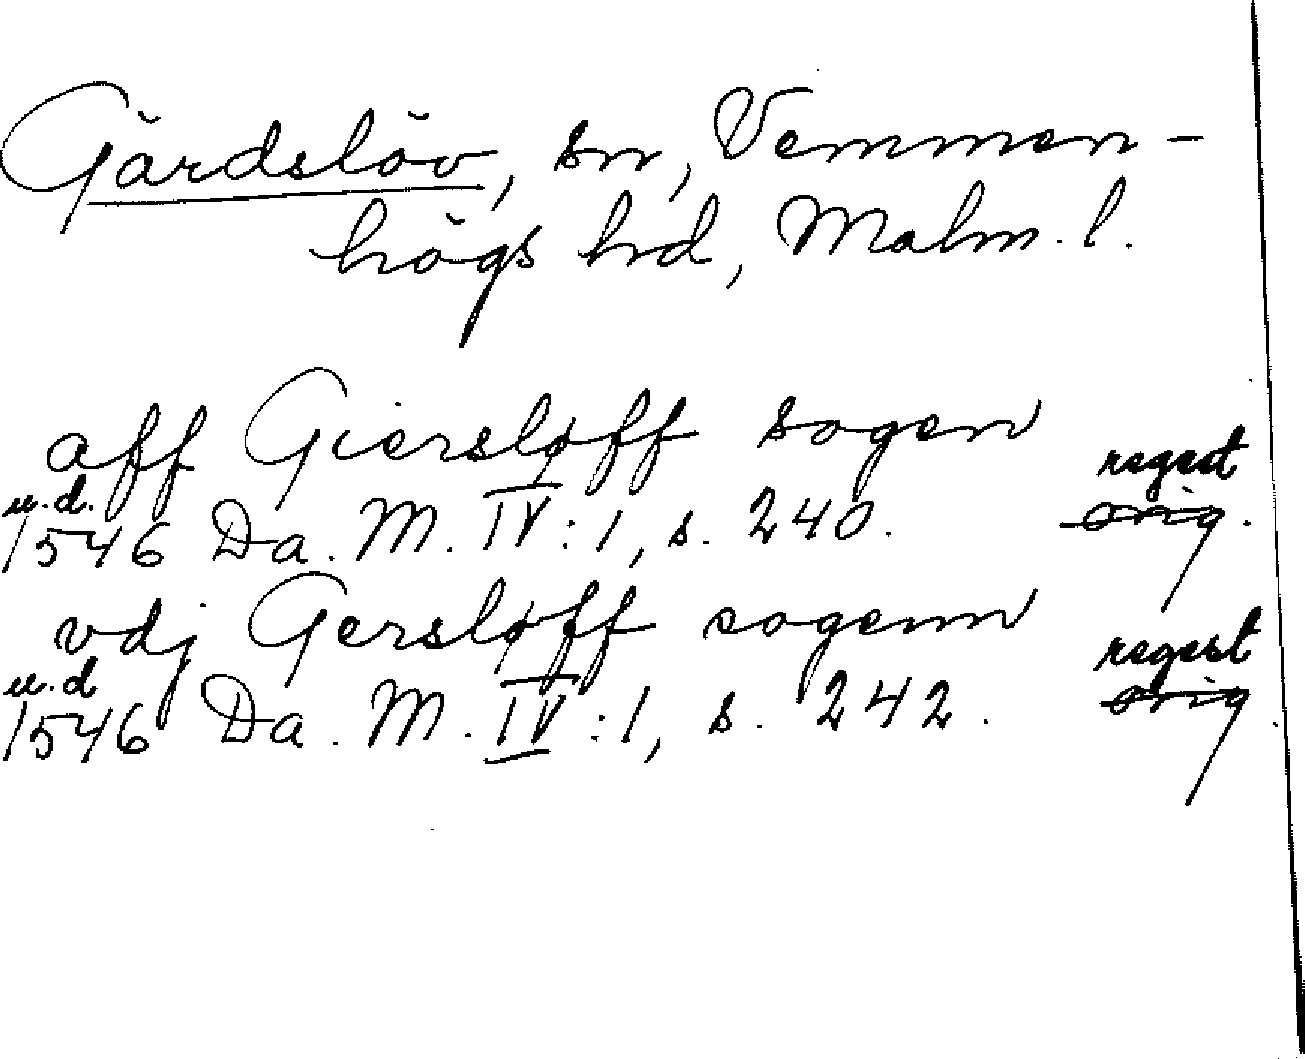 Gärdslöv, sn, Vemmen-
högs hd, Malm. l.
aff Giersløff sogen
u.d. regest
1546 Da. M. IV:1, s. 240. orig.
vdj Gersløff sogenn
u.d regest
1546 Da. M. IV:1, s. 242. orig.